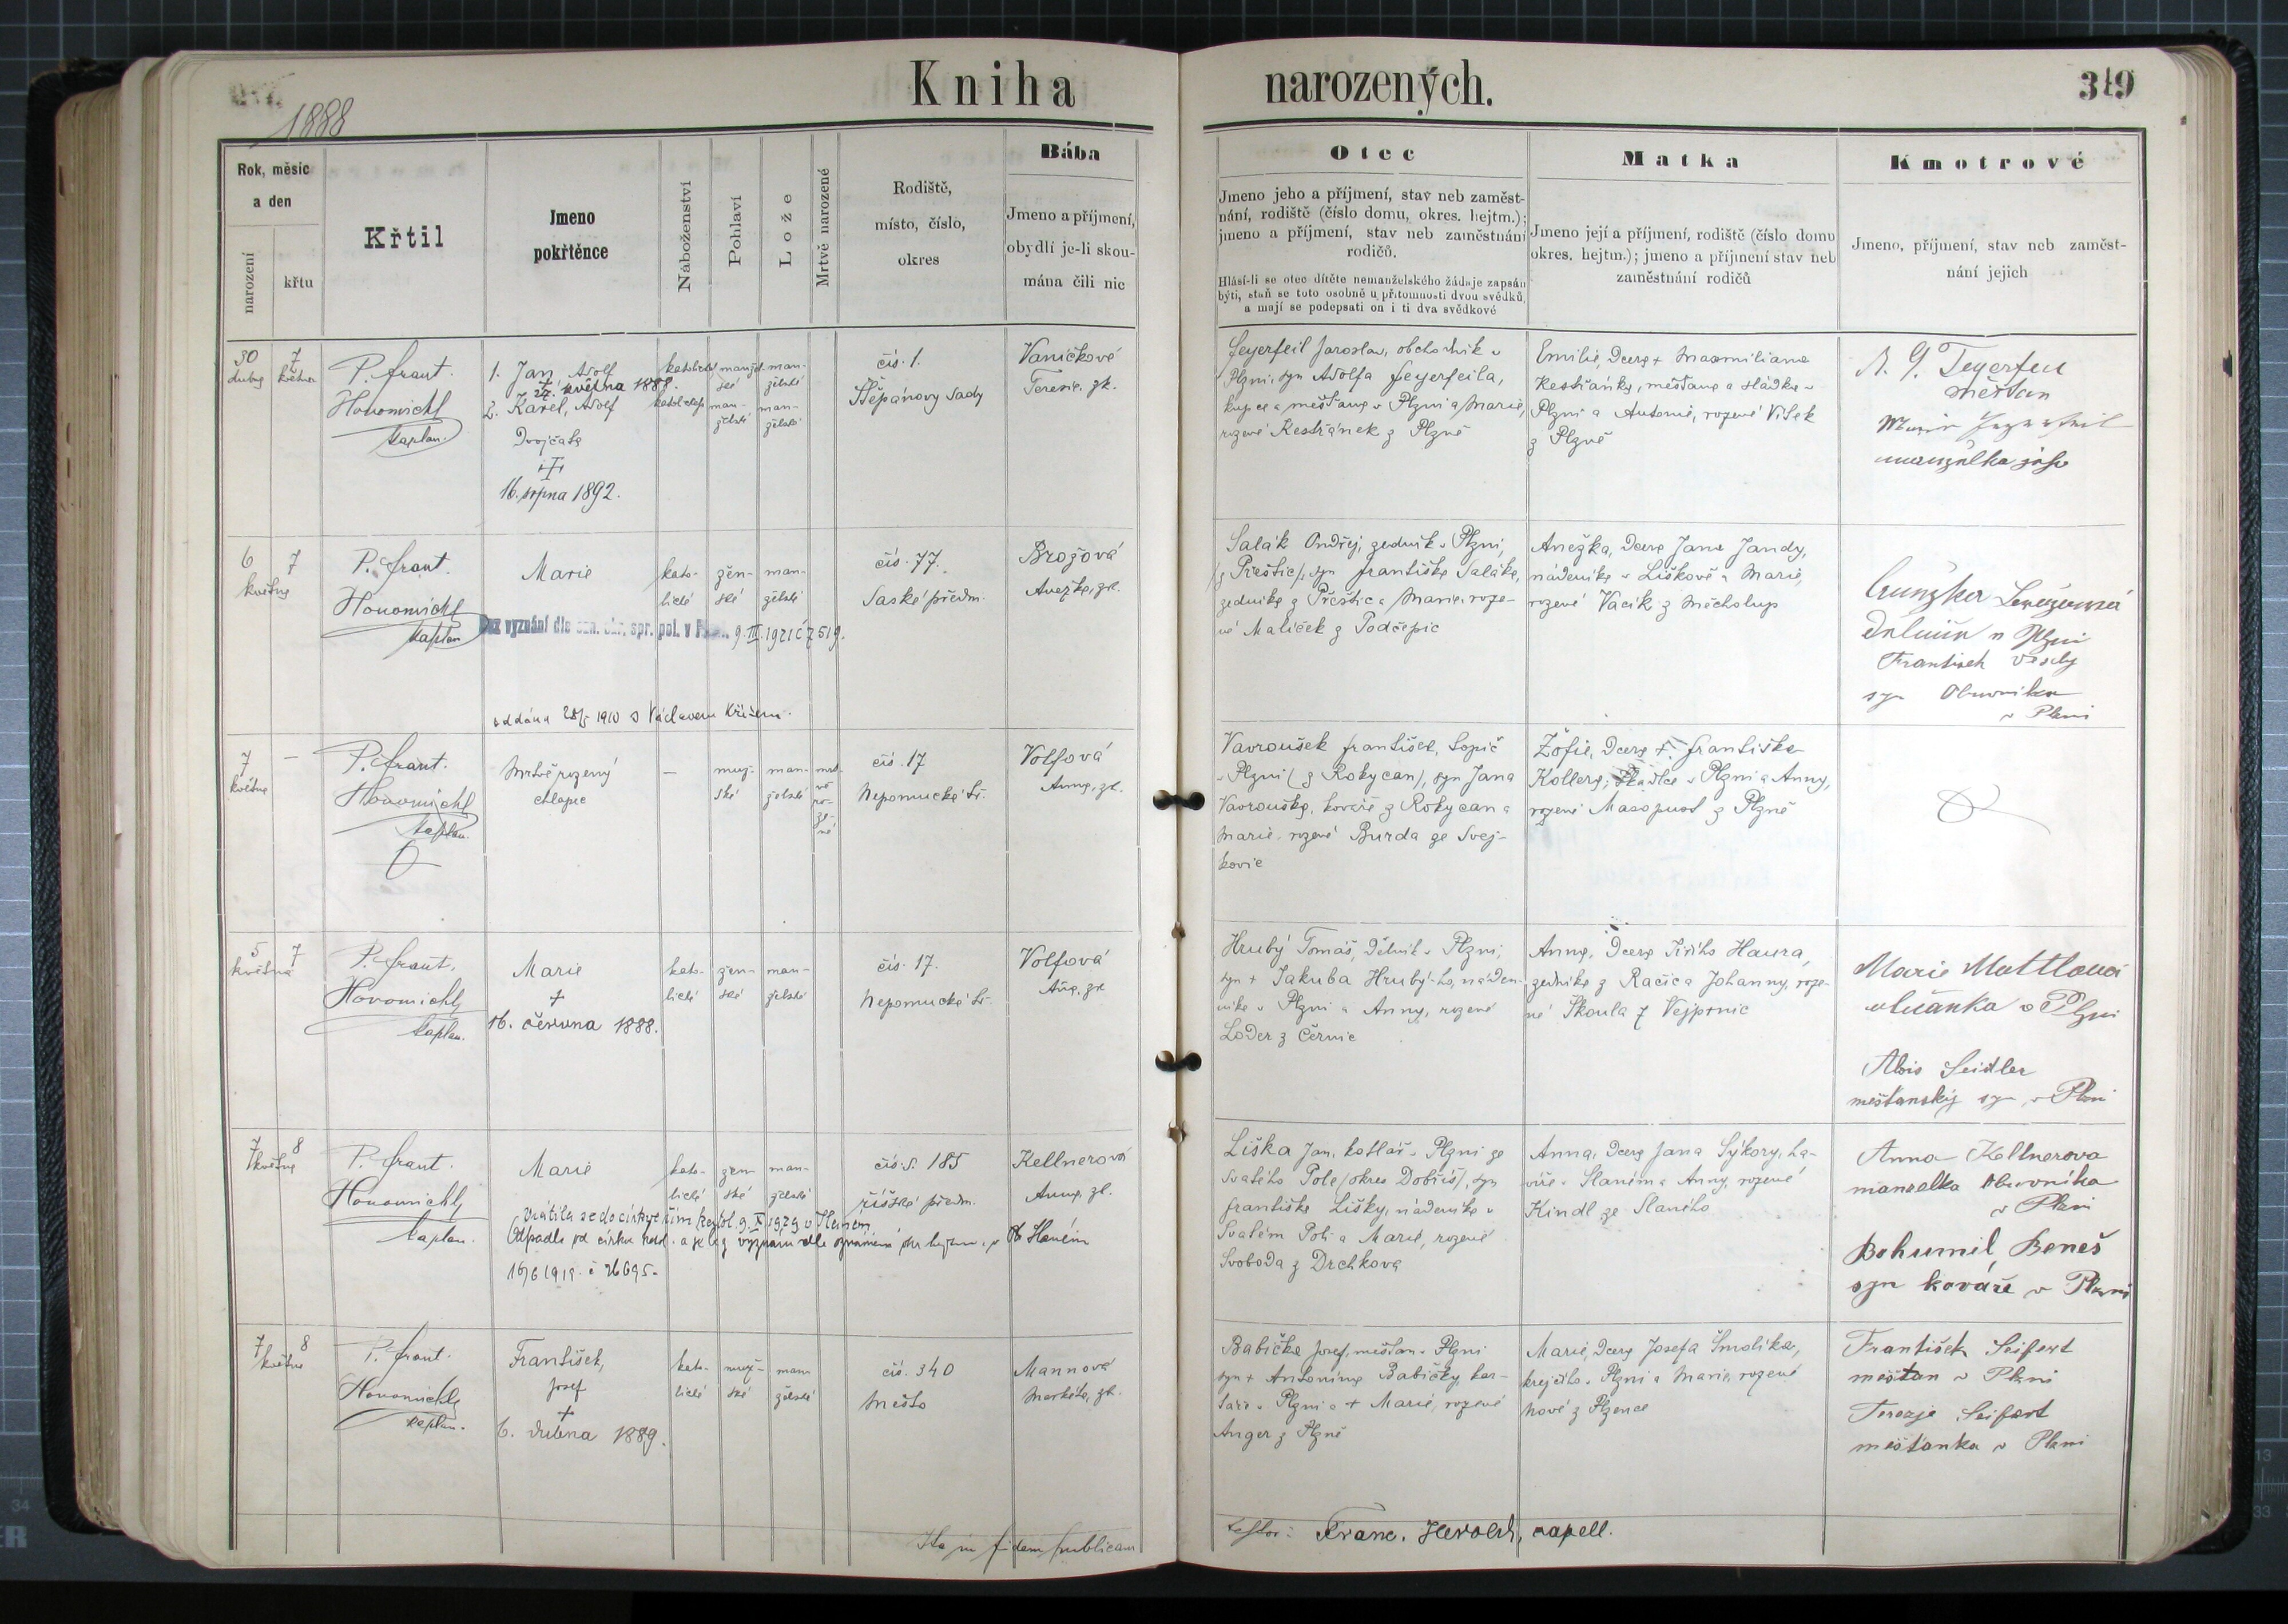 Kniha narozených.
1888
319
Rok, měsíc
a den
narození
křtu
Křtil
Jmeno
pokřtěnce
Náboženství
Pohlaví
Lože
Mrtvě narozené
Rodiště,
místo, číslo,
okres
Bába
Jmeno a příjmení,
obydlí je-li skou-
mána čili nic
Otec
Jmeno jeho a příjmení, stav neb zaměst-
nání, rodiště (číslo domu, okres. hejtm.);
jmeno a příjmení, stav neb zaměstnání
rodičů.
Hlásí-li se otec dítěte nemanželského žádaje zapsán
býti, staň se toto osobně u přítomnosti dvou svědků,
a mají se podepsati on i ti dva svědkové
Matka
Jmeno její a příjmení, rodiště (číslo domu
okres. hejtm.); jmeno a příjmení stav neb
zaměstnání rodičů
Kmotrové
Jmeno, příjmení, stav neb zaměst-
nání jejich
30
dubna
7
května
P. Frant.
Honomichl
kaplan.
1. Jan, Adolf
května 1888.
2. Karel, Adolf
Dvojčata
16. srpna 1892.
katolické
katolické
man-
želské
man-
želské
čís. 1.
Štěpánovy sady
Vaníčková
Terezie, zk.
Feyerfeil Jaroslav, obchodník v
Plzni, syn Adolfa Feyerfeila,
kupce a měšťana v Plzni a Marie,
rozené Kestřánek z Plzně
Emilie, dcera + Maxmiliana
Kestřánka, měšťana a sládka v
Plzni a Antonie, rozené Višek
z Plzně
měšťan
manželka jeho
6
května
7
P. Frant.
Honomichl
kaplan
Marie
Bez vyznání dle ozn. okr. spr. pol. v Plzni. 9. III. 1921 č 7519.
oddána 28/5 1910 s Václavem Křížem.
kato-
lické
žen-
ské
man-
želské
čís. 77.
Saské předm.
Brožová
Anežka, zk.
Salák Ondřej, zedník v Plzni,
(z Přeštic), syn Františka Saláka,
zedníka z Přeštic a Marie, roze-
né Malíček z Podčepic
Anežka, dcera Jana Jandy,
nádeníka v Liškově a Marie,
rozené Vacík z Měcholup
František Veselý
syn Obuvníka
v Plzni
7
května
–
P. Frant.
Honomichl
kaplan.
Mrtvě rozený
chlapec
–
muž-
ské
man-
želské
mrt-
vě
ro-
ze-
né
čís. 17
Nepomucká tř.
Volfová
Anna, zk.
Vavroušek František, topič
v Plzni (z Rokycan), syn Jana
Vavrouška, kováře z Rokycan a
Marie, rozené Burda ze Svej-
kovic
Žofie, dcera + Františka
Kollera, tkadlce v Plzni a Anny,
rozené Masopust z Plzně
5
května
7
P. Frant.
Honomichl
kaplan.
Marie
+
16. června 1888.
kato-
lické
žen-
ské
man-
želské
čís. 17.
Nepomucká tř.
Volfová
Anna, zk
Hrubý Tomáš, dělník v Plzni,
syn + Jakuba Hrubý-ho, náden-
níka v Plzni a Anny, rozené
Loder z Černic
Anna, dcera Jiřího Haura,
zedníka z Račic a Johanny, roze-
né Skoula z Vejprnic
Marie Mottlová
občanka v Plzni
Alois Seidler
měšťanský syn v Plzni
7
května
8
P. Frant.
Honomichl
kaplan.
Marie
Vrátila se do církve řím. katol. 9. X. 1929 v Slaném
Odpadla od církve katol. a je bez vyznání dle oznámení okr. hejtm. v Slaném
16/6 1919 č 26695.
kato-
lické
žen-
ské
man-
želské
čís. 185
říšské předm.
Kellnerová
Anna, zk.
Liška Jan, kotlář v Plzni ze
Svatého Pole (okres Dobříš), syn
Františka Lišky, nádeníka v
Svatém Poli a Marie, rozené
Svoboda z Drchkova
Anna, dcera Jana Sýkory, ha-
víře v Slaném a Anny, rozené
Kindl ze Slaného
Anna Kellnerova
manzelka Obuvníka
v Plzni
Bohumil Beneš
syn kováře v Plzni
7
května
8
P. Frant.
Honomichl
kaplan.
František,
Josef
+
6. dubna 1889.
kato-
lické
muž-
ské
man-
želské
čís. 340
Město
Mannová
Markéta, zk.
Babička Josef, měšťan v Plzni
syn + Antonína Babičky, kar-
táře v Plzni a + Marie, rozené
Anger z Plzně
Marie, dcera Josefa Smolíka,
krejčího v Plzni a Marie, rozené
Nové z Plzence
František Seifert
měšťan v Plzni
Terezie Seifert
měšťanka v Plzni
Ita in fidem publicam
testor: Franc. Herold, capell.